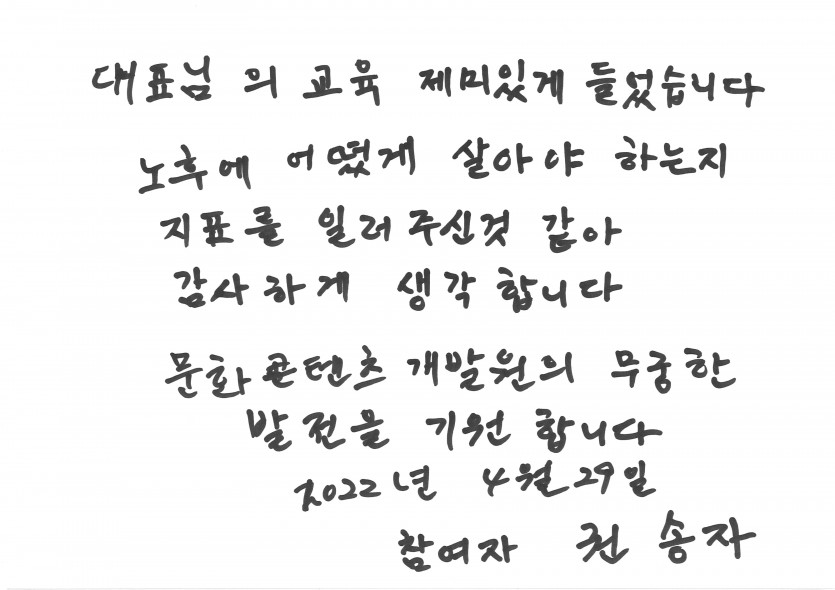 대표님 의 교육 제미있게 들었습니다
노후에 어떻게 살아야 하는지
지표를 일러주신것 같아
감사하게 생각합니다
문화콘텐츠 개발원의 무궁한
발전을 기원 합니다
2022년 4월 29일
참여자 권송자